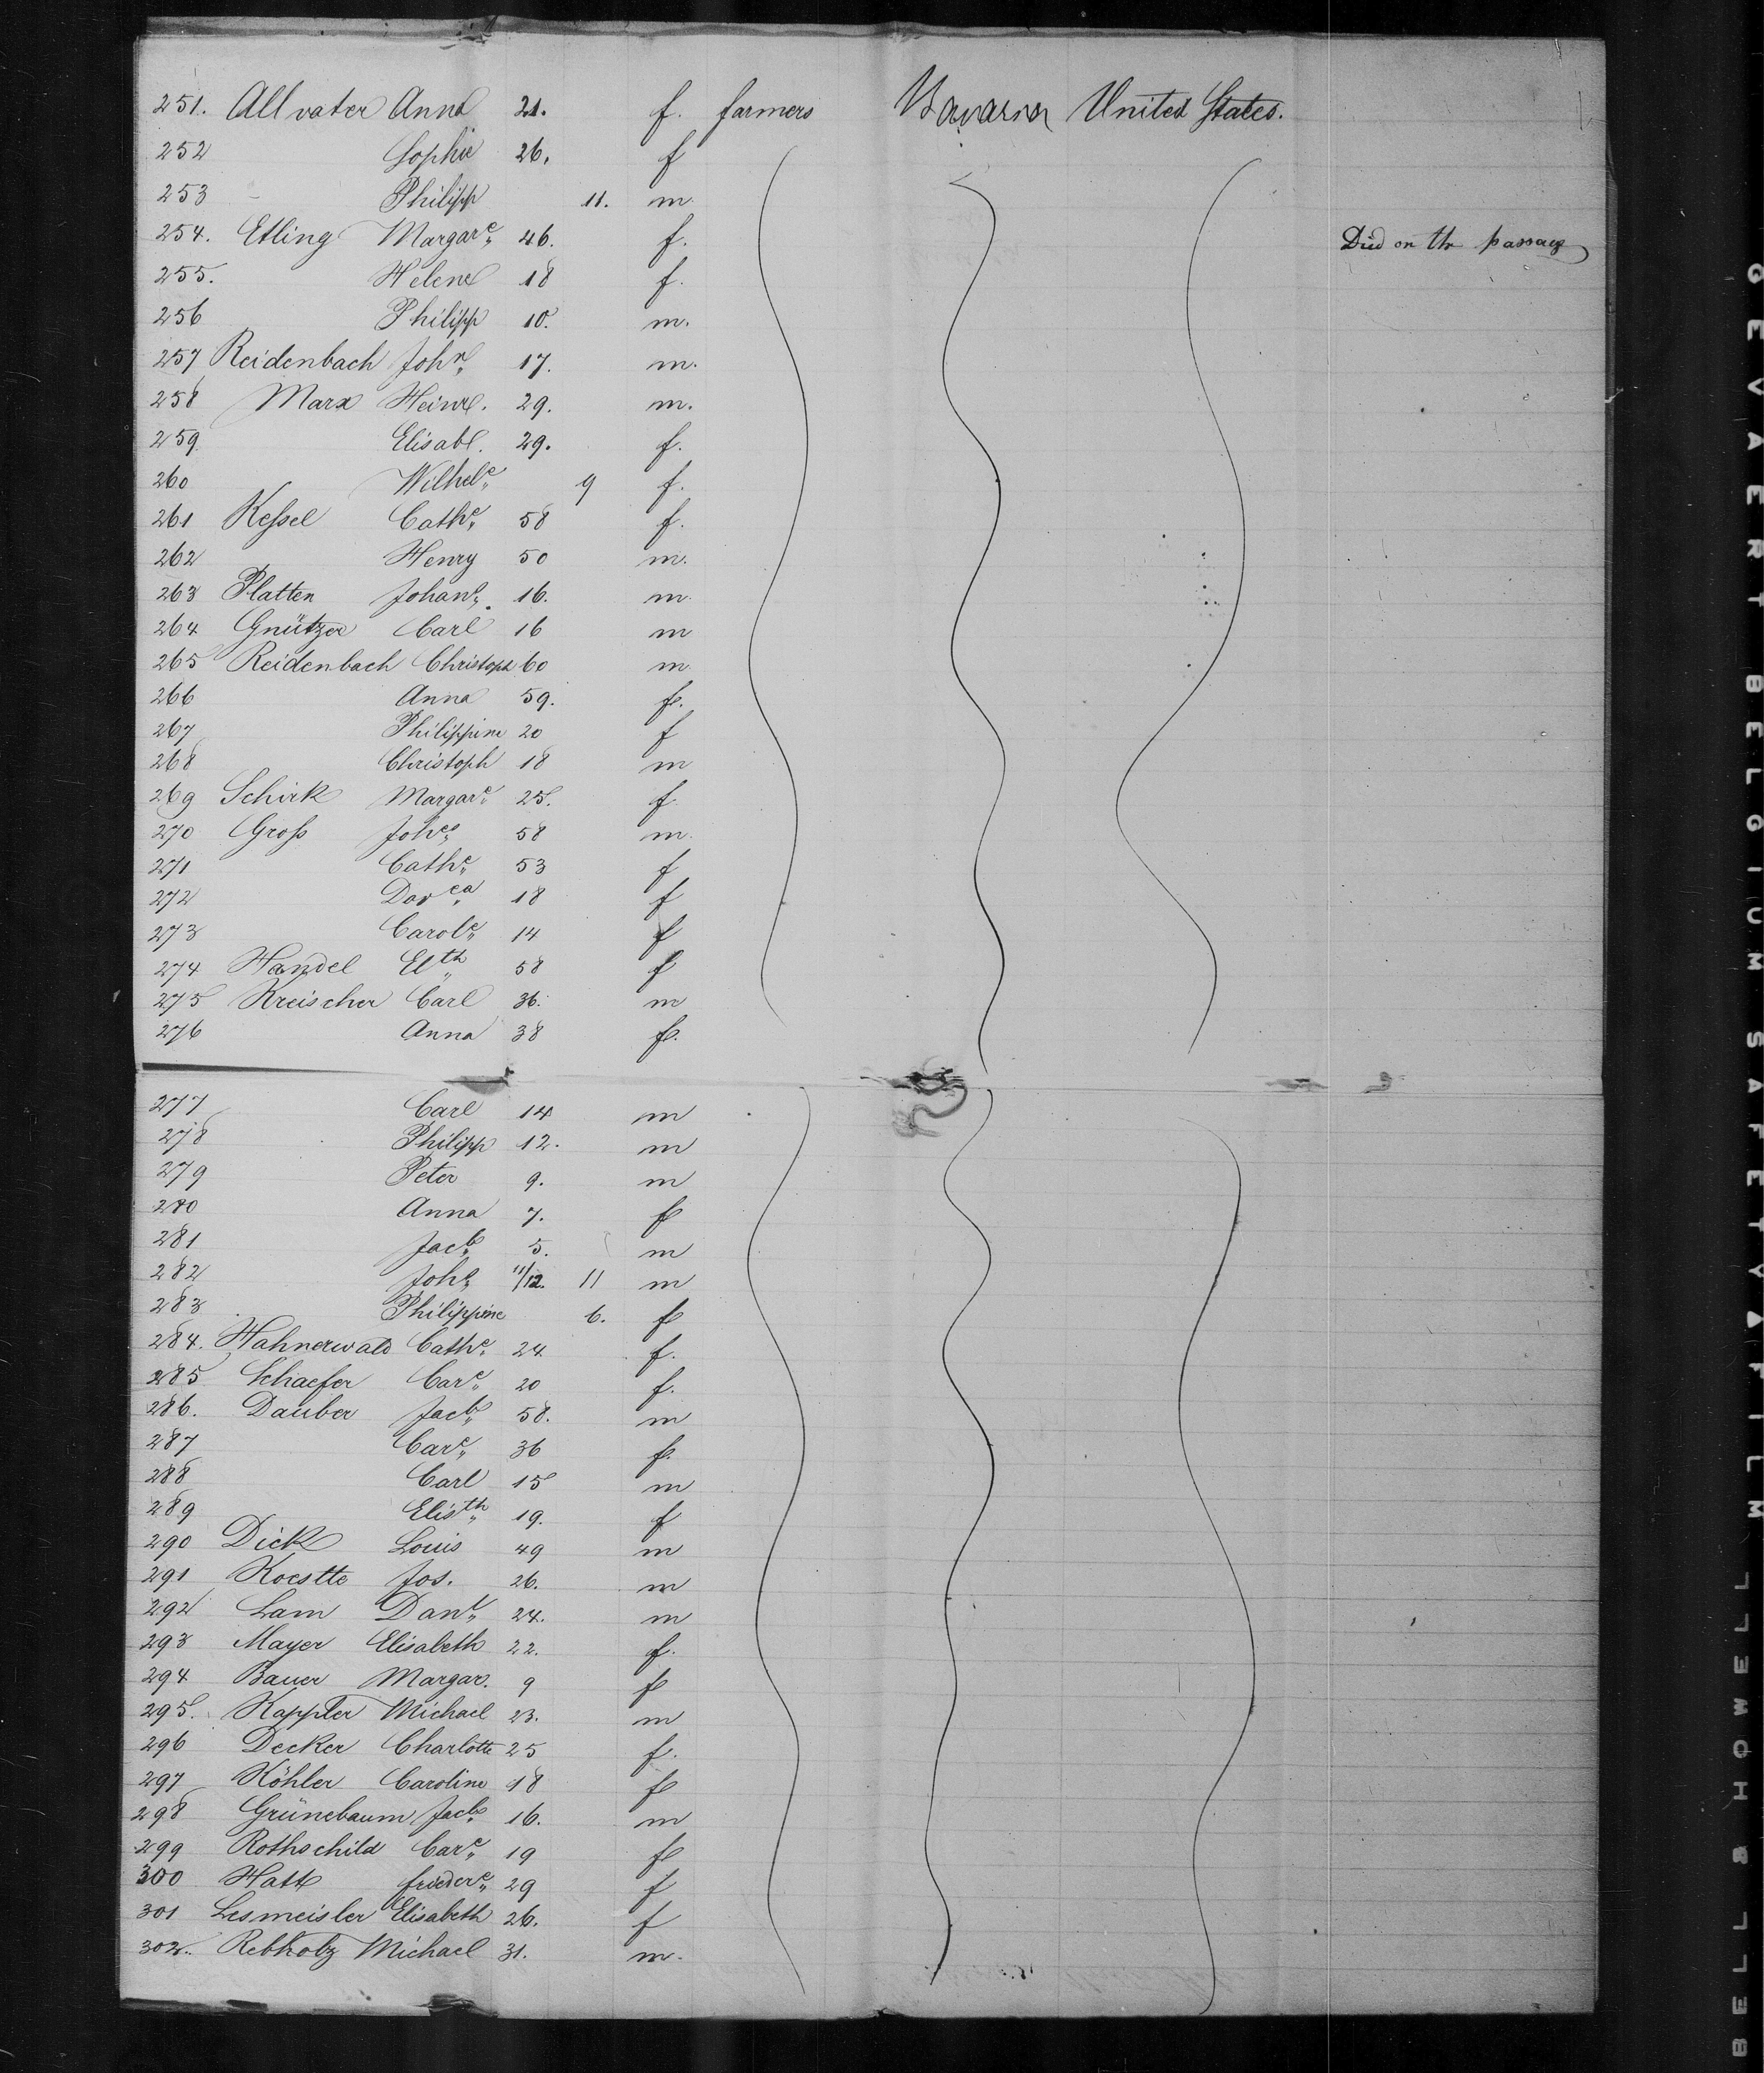 251. Allvater Anna 21. f. farmers Bavaria United States.
252 Sophie 26. f
253 - Philipp 11. m.
254. Etling Margar^e 46. f. Died on the passage
255. Helene 18 f.
256 Philipp 10. m.
257 Reidenbach Joh^n 17. m.
258 Marx Heinr. 29. m.
259 Elisab. 29. f.
260 Wilhel^e 9 f.
261 Keſsel Cath^e 58 f.
262 Henry 50 m.
263 Platten Johan^s 16. m.
264 Gnützer Carl 16 m
265 Reidenbach Christoph 60 m.
266 Anna 59. f.
267 Philippine 20 f
268 Christoph 18 m
269 Schirk Margar^e 25. f
270 Groſs Joh^es 58 m.
271 Cath^e 53 f
272 Dor^ea 18 f
273 Carol^e 14 f
274 Handel El^th 58 f
275 Kreischer Carl 36. m
276 Anna 38 f.
277 Carl 14 m
278 Philipp 12. m
279 Peter 9. m
280 Anna 7. f
281 Jac^b 5. m
282 Joh^s 11/12. 11 m
283 Philippine 6. f
284. Hahnerwald Cath^e 24 f.
285 Schaefer Car^e 20 f.
286. Dauber Jac^b 58. m
287 Car^e 36 f.
288 Carl 15 m
289 Elis^th 19. f
290 Dick Louis 49 m
291 Koestte Jos. 26. m
292 Lam Dan^l 24. m
293 Mayer Elisabeth 22. f.
294 Bauer Margar. 9 f
295. Kappler Michael 23. m
296 Decker Charlotte 25 f.
297 Köhler Caroline 18 f
298 Grünebaum Jac^b 16. m
299 Rothschild Car^e 19 f
300 Hatt frieder^e 29 f
301 Lesmeisler Elisabeth 26. f
302. Rebholz Michael 31. m.
GEVAERT BELGIUM SAFETY FILM BELL & HOWELL